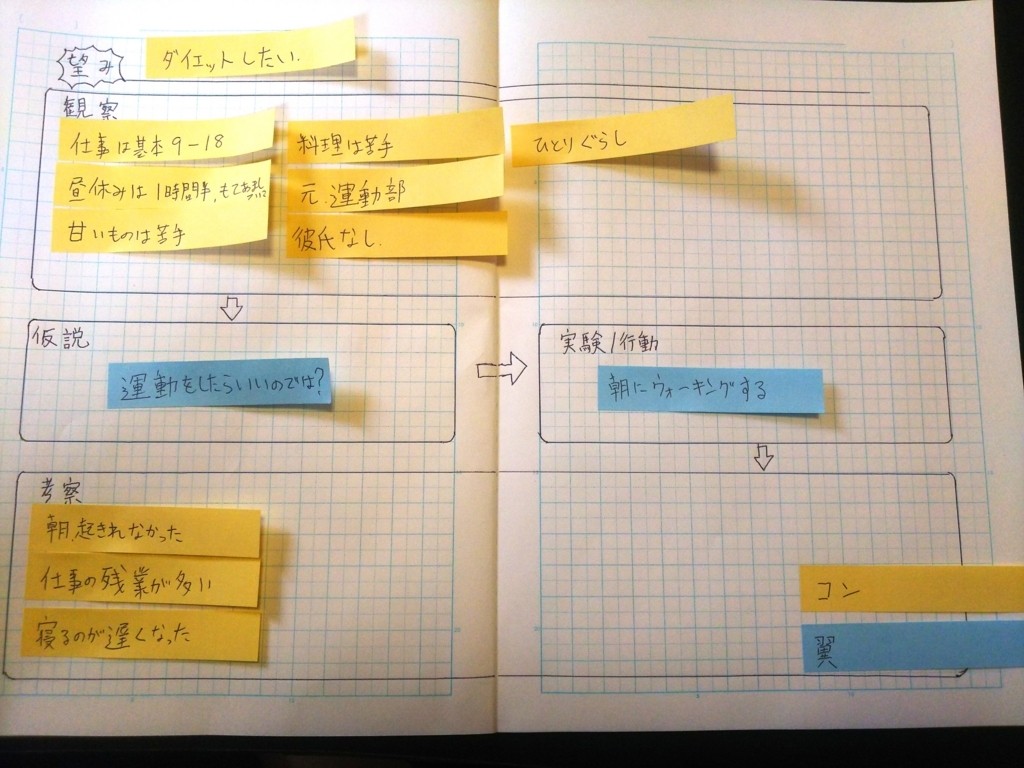 望み
ダイエットしたい.
観察
仕事は基本9-18
料理は苦手
ひとりぐらし
昼休みは1時間半,もてあまし
元.運動部
甘いものは苦手
彼氏なし.
仮説
運動をしたらいいのでは?
実験/行動
朝にウォーキングする
考察
朝,起きれなかった
仕事の残業が多い
寝るのが遅くなった
コン
翼